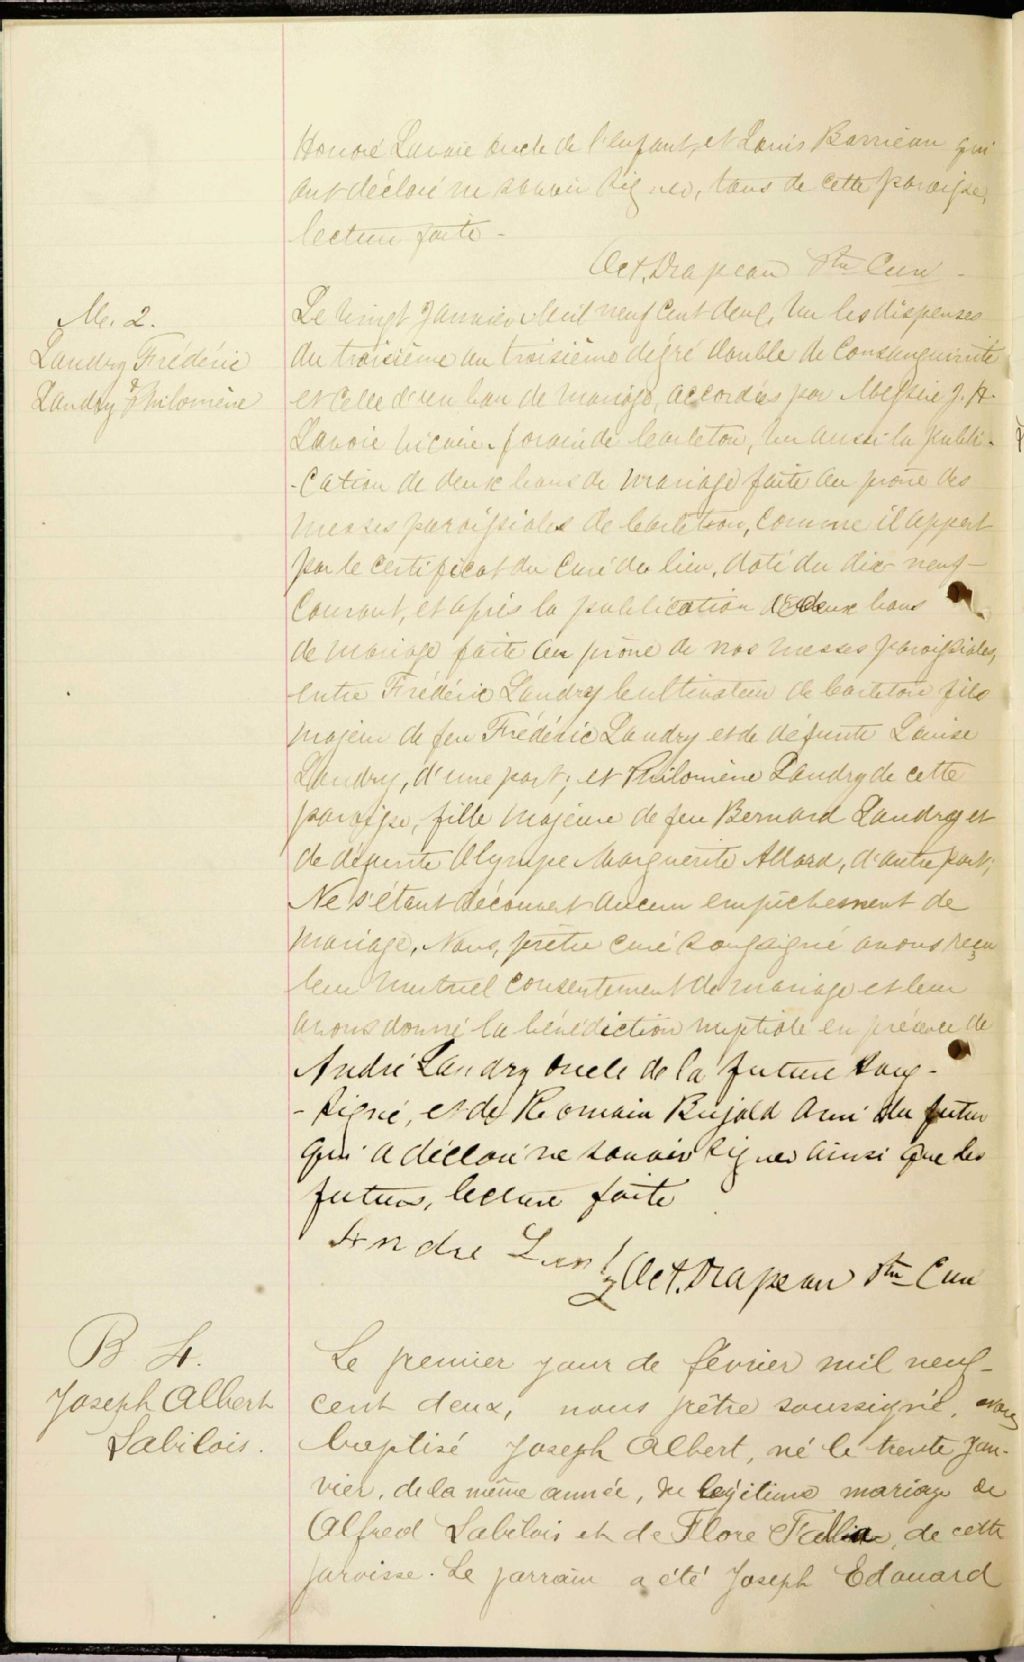 Honoré Lavoie oncle de l'enfant, et Louis Barrieau qui
ont déclaré ne savoir signer, tous de cette paroisse,
lecture faite -
Oct. Drapeau Ptre Curé -
M. 2.
Landry Frédéric
&
Landry Philomène
Le vingt Janvier Mil neuf Cent deux, Vu les dispenses
du troisième au troisième dégré double de Consanguinité
et Celle d'un ban de mariage, accordées par Messire J. A.
Lavoie Vicaire forain de Carleton, Vu aussi la publi-
-cation de deux bans de mariage faite au prône des
messes paroissiales de Carleton, Comme il appert
par le Certificat du Curé du lieu, daté du dix-neuf-
Courant, et après la publication de deux bans
de mariage faite au prône de nos messes paroissiales,
entre Frédéric Landry Cultivateur de Carleton fils
majeur de feu Frédéric Landry et de défunte Louise
Landry, d'une part; et Philomène Landry de cette
paroisse, fille majeure de feu Bernard Landry et
de défunte Olympe Marguerite Allard, d'autre part;
Ne s'étant découvert aucun empêchement de
mariage, Nous, prêtre curé soussigné avons reçu
leur mutuel Consentement de mariage et leur
avons donné la bénédiction nuptiale en présence de
André Landry oncle de la future sous-
-signé, et de Romain Bujold Ami du futur
qui a déclaré ne savoir signer ainsi que les
futurs, lecture faite
Andre Landry
Oct. Drapeau Ptre Curé
B 4.
Joseph Albert
Labilois.
Le premier jour de février mil neuf-
cent deux, nous prêtre soussigné, avons
baptisé Joseph Albert, né le trente Jan-
vier, de la même année, du légitime mariage de
Alfred Labilois et de Flore, de cette
paroisse. Le parrain a été Joseph Edouard